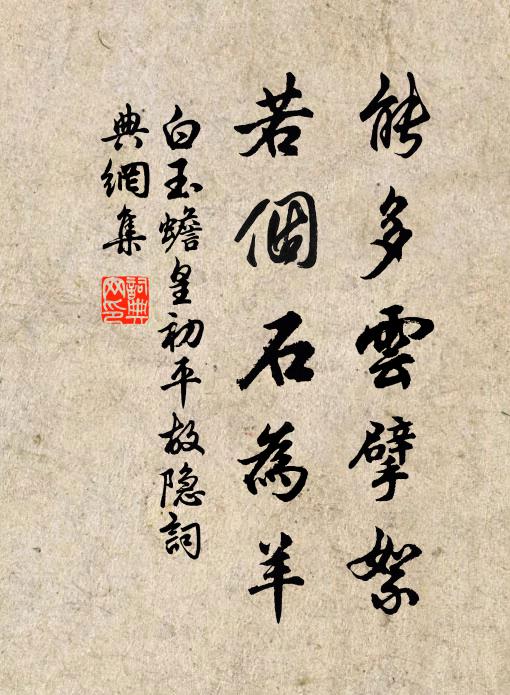 能多雲擘絮
若個石為羊
白玉蟾皇初平故隐詞
典網集
詞典
网印